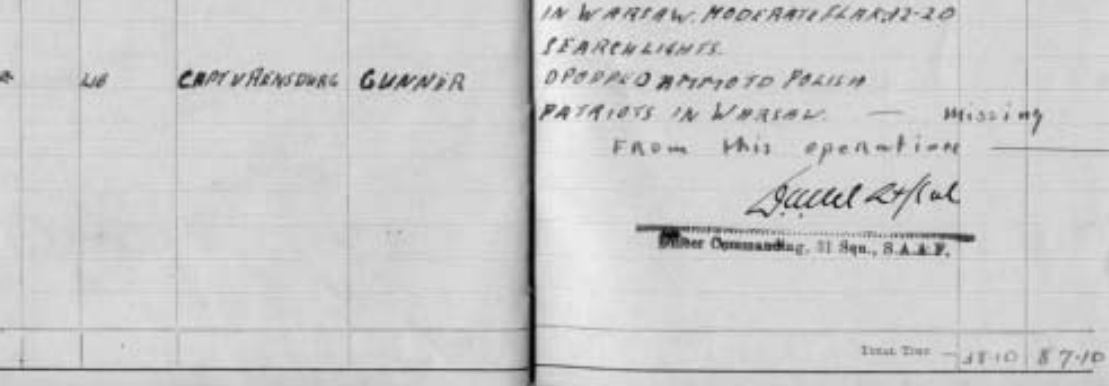 LIB CAPT V RENSBURG GUNNER
IN WARSAW. MODERATE FLAK. 12-20
SEARCHLIGHTS.
DROPPED AMMO TO POLISH
PATRIOTS IN WARSAW. — Missing
From this operation —
Lt/Col
Officer Commanding, 31 Sqn., S.A.A.F.
TOTAL TIME — 38·10 87·10